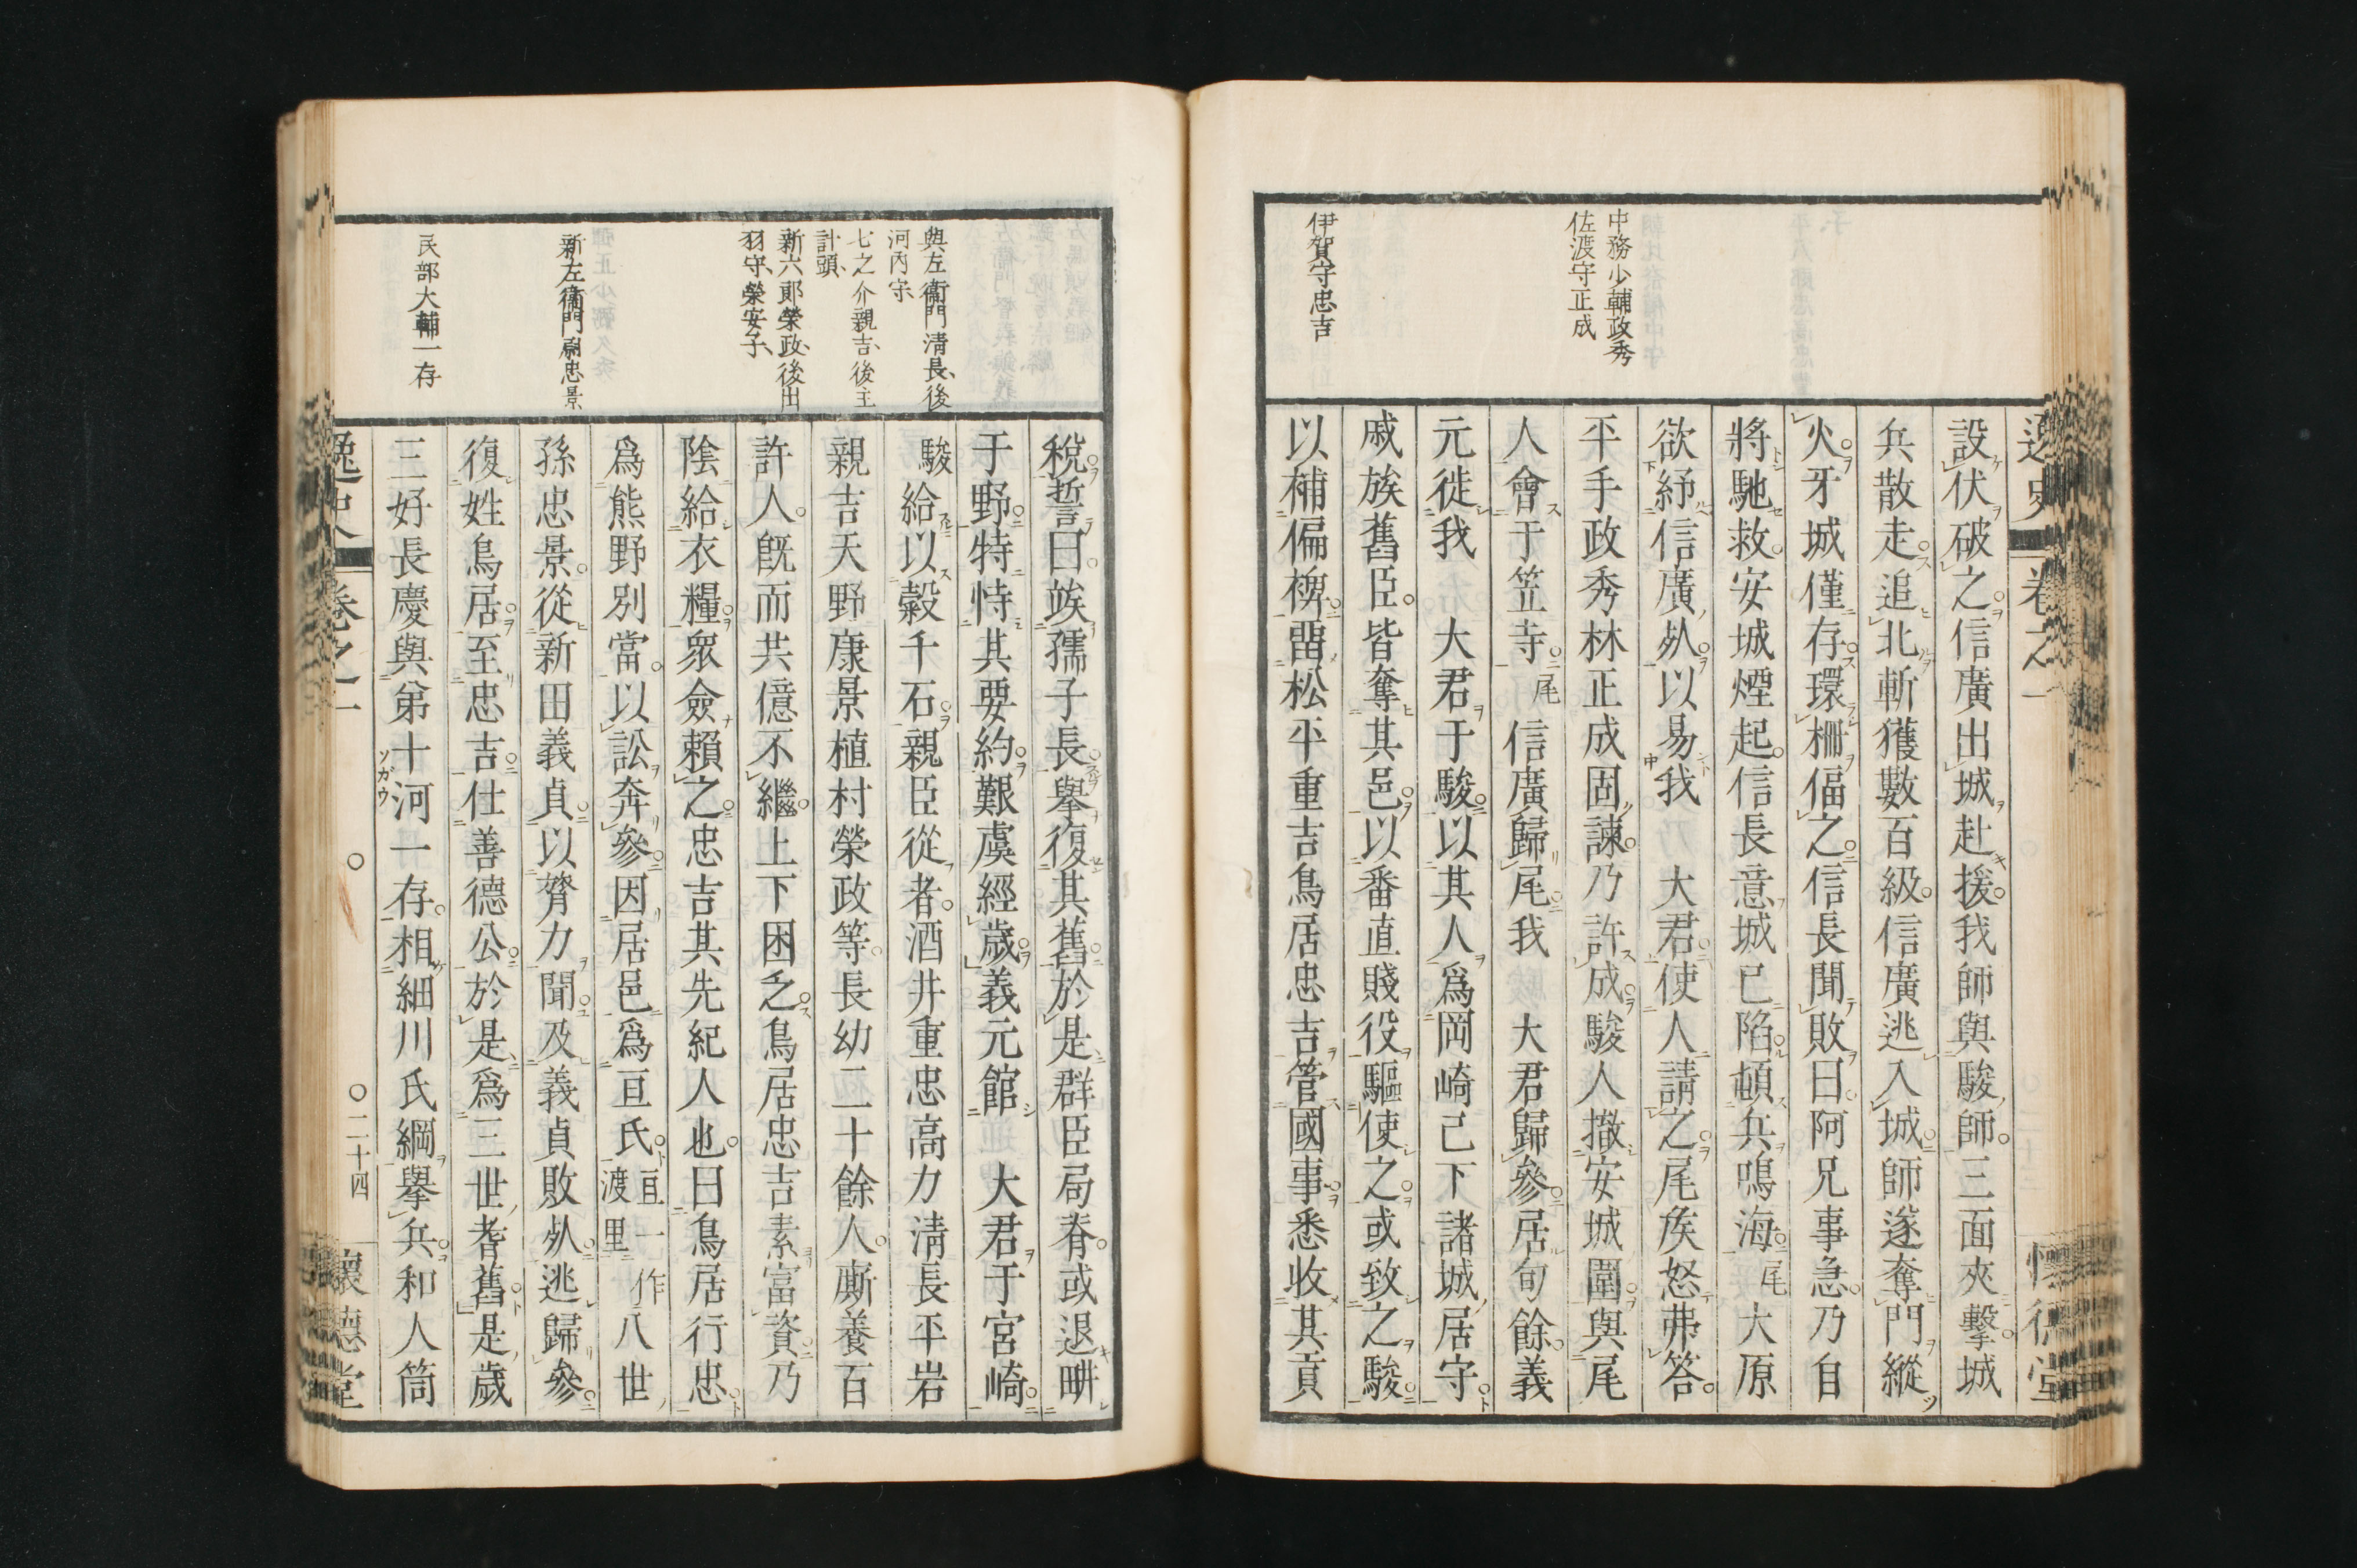 逸史
卷之一
懷德堂
中務少輔政秀
佐渡守正成
伊賀守忠吉
設伏破之信廣出城赴援我師與駿師三面夾擊城
兵散走追北斬獲數百級信廣逃入城師遂奪門縱
火牙城僅存環柵偪之信長聞敗曰阿兄事急乃自
將馳救安城煙起信長意城已陷頓兵鳴海尾大原
欲紓信廣𡰱以易我大君使人請之尾矦怒弗答
平手政秀林正成固諫乃許成駿人撤安城圍與尾
人會于笠寺尾信廣歸尾我大君歸參居旬餘義
元徙我大君于駿以其人爲岡崎己下諸城居守
戚族舊臣皆奪其邑以番直賤役驅使之或致之駿
以補偏裨畱松平重吉鳥居忠吉管國事悉收其貢
與左衞門淸長後
河內守
七之介親吉後主
計頭
新六郎榮政後出
羽守榮安子
新左衞門尉忠景
民部大輔一存
稅誓曰竢孺子長擧復其舊於是群臣局脊或退畊
于野特恃其要約艱虞經歲義元館大君于宮崎
駿給以穀千石親臣從者酒井重忠高力淸長平岩
親吉天野康景植村榮政等長幼二十餘人廝養百
許人旣而共億不繼上下困乏鳥居忠吉素富資乃
陰給衣糧眾僉賴之忠吉其先紀人也曰鳥居行忠
爲熊野別當以訟奔參因居邑爲亘氏亘一作渡里八世
孫忠景從新田義貞以膂力聞及義貞敗𡰱逃歸參
復姓鳥居至忠吉仕善德公於是爲三世耆舊是歲
三好長慶與弟十河一存相細川氏綱擧兵和人筒
ソガウ
逸史
卷之一
二十四
懷德堂